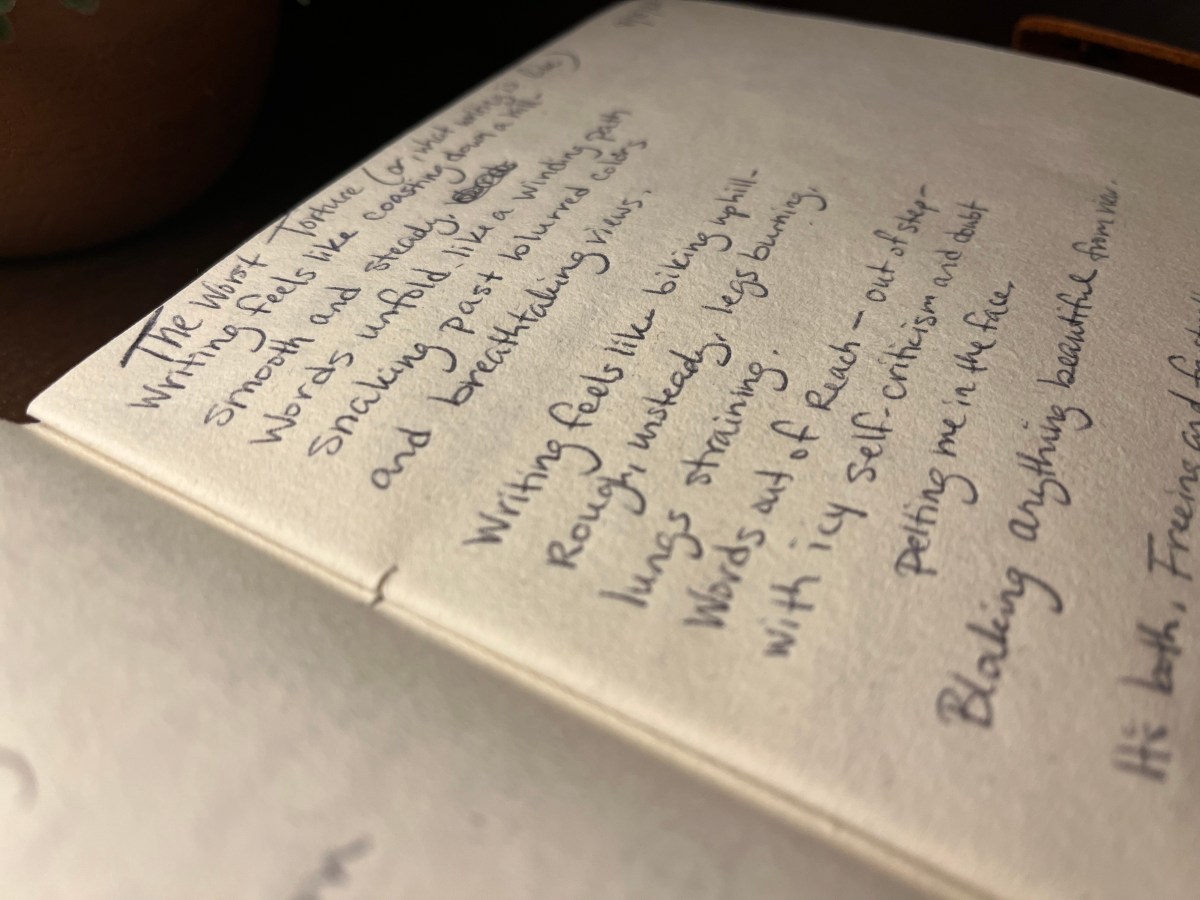 The Worst Torture (or, what writing is like)
Writing feels like coasting down a hill-
Smooth and steady.
Words unfold like a winding path
Snaking past blurred colors
and breathtaking views.
Writing feels like biking uphill-
Rough, unsteady, legs burning,
lungs straining.
Words out of Reach – out of step-
with icy self-criticism and doubt
Pelting me in the face,
Blocking anything beautiful from view.
It's both. Freeing and